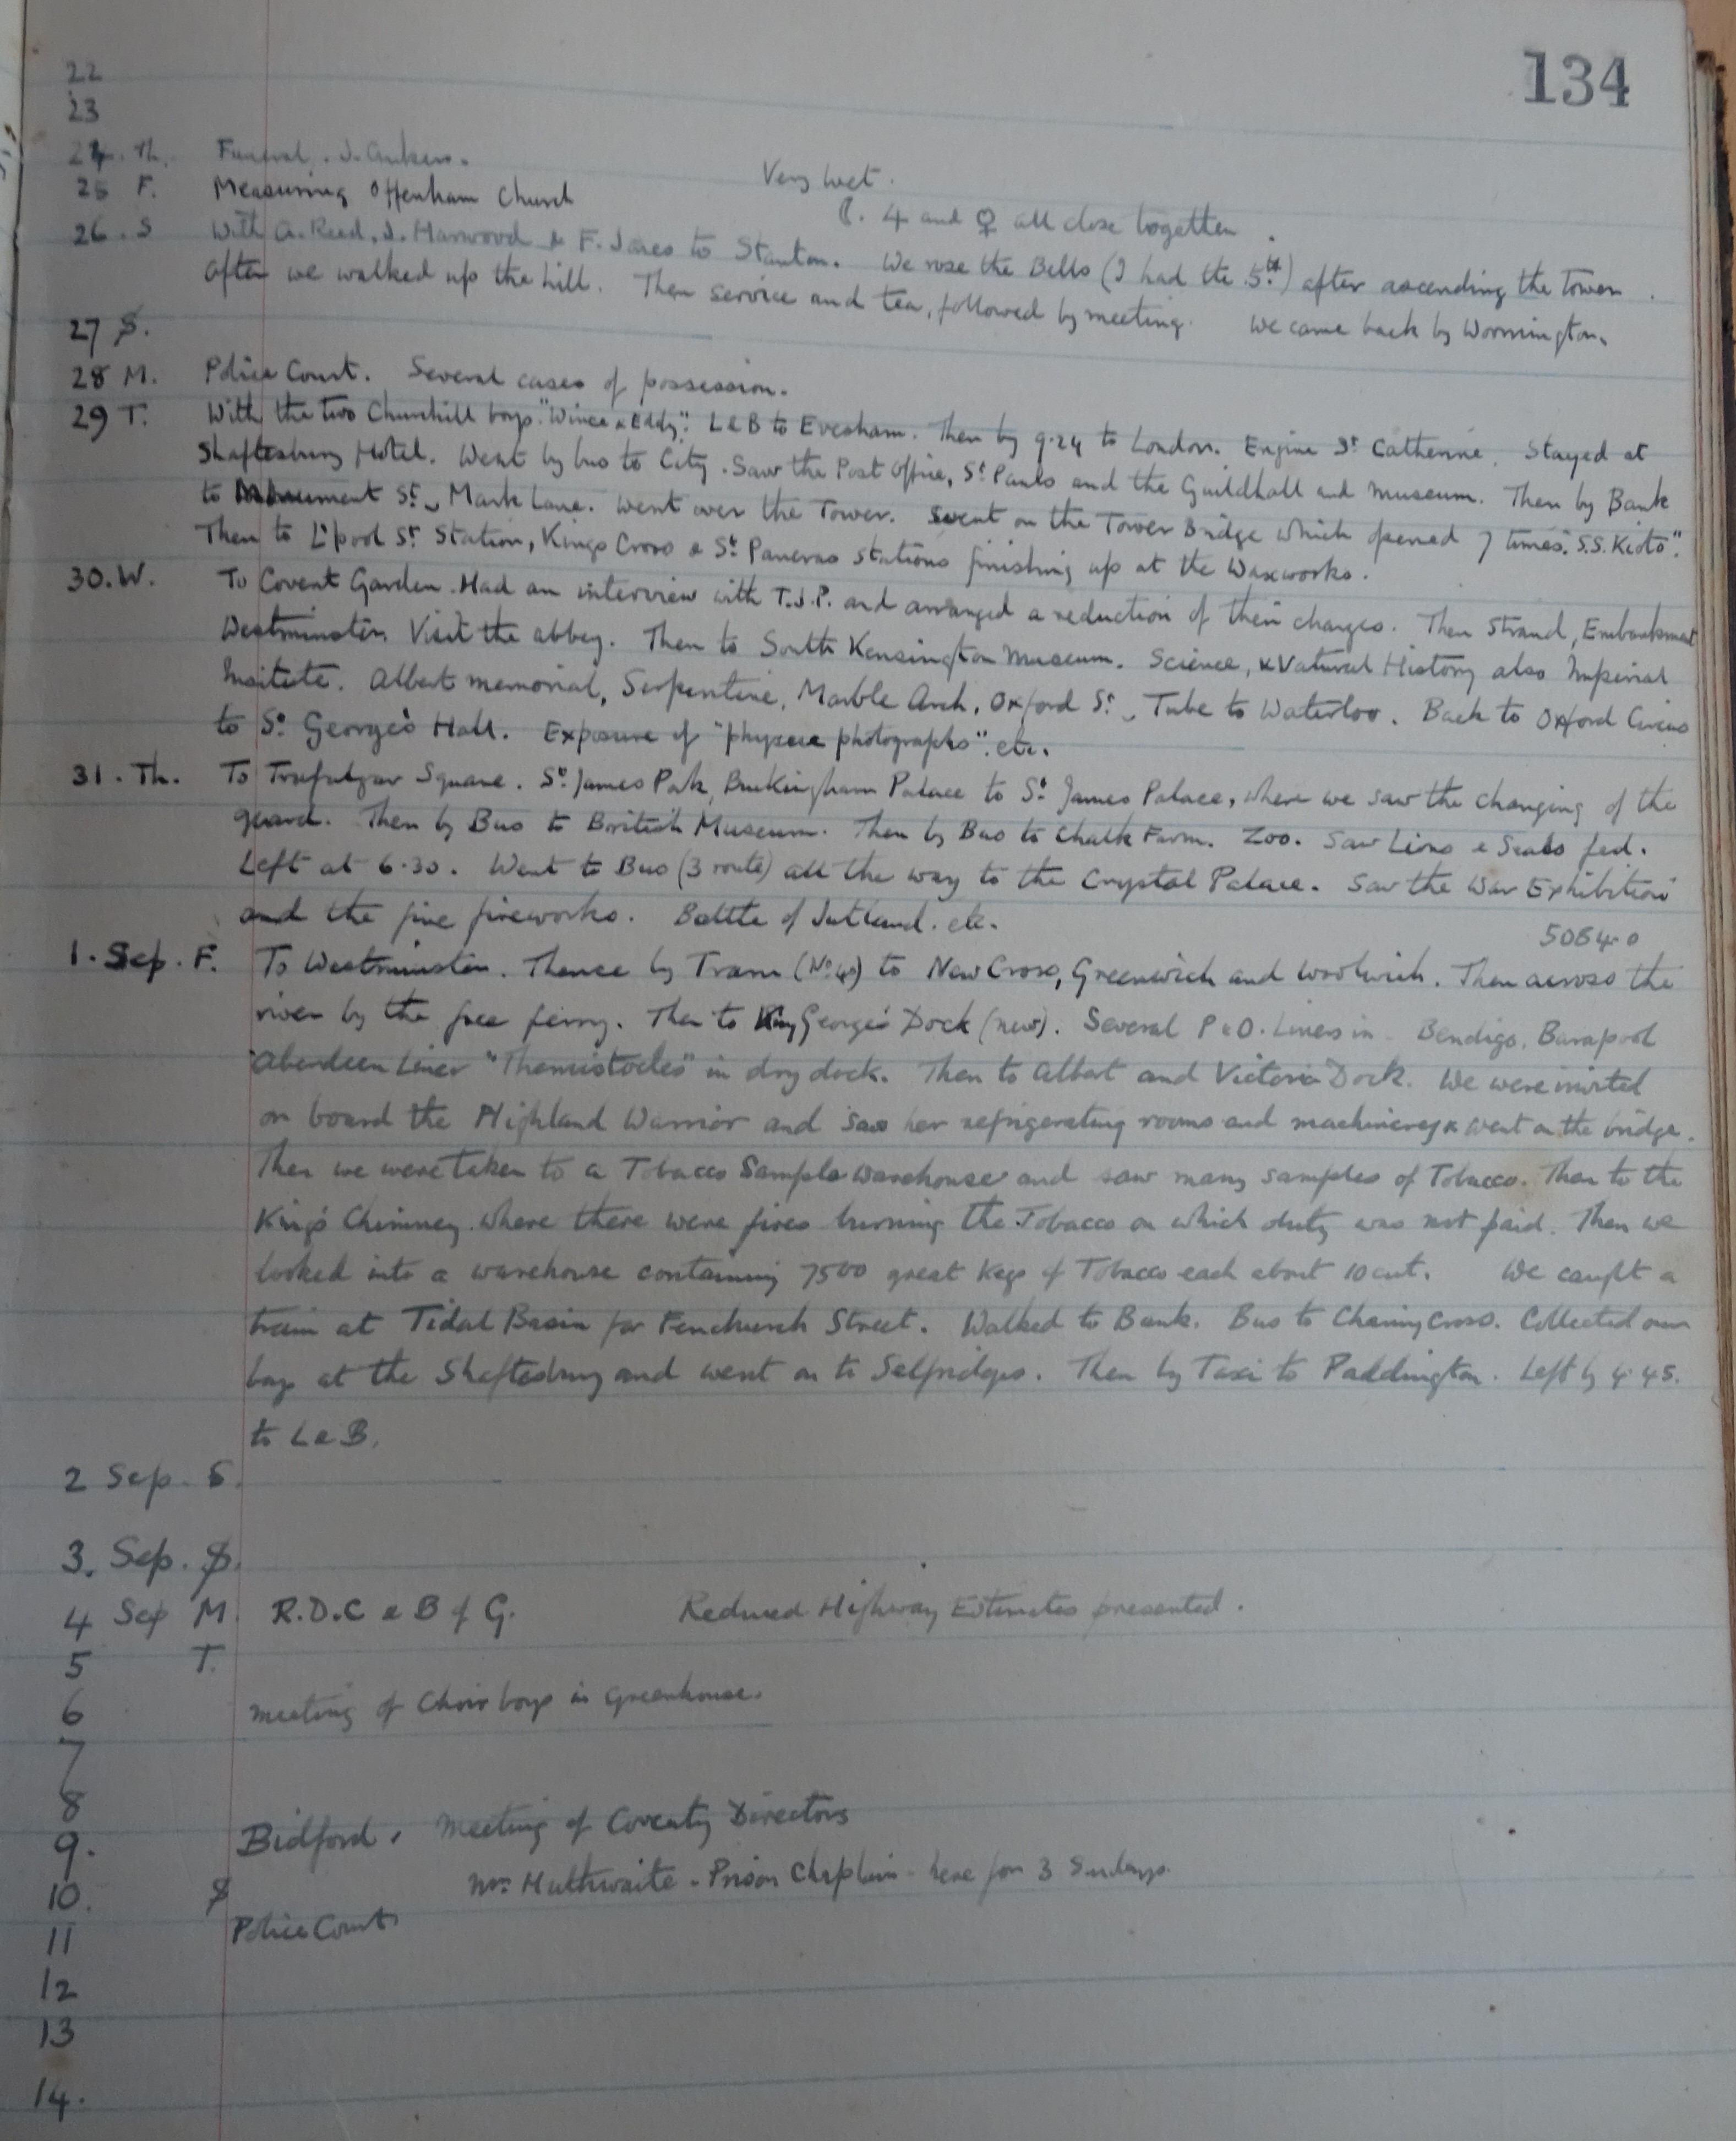 134
22
23
24. Th. Funeral. J.
25 F. Measuring Offenham Church Very wet.
☾. ♃ and ♀ all close together.
26. S With A. Reed, J. Harwood & F. Jones to Stanton. We rose the Bells (I had the 5th) after ascending the Tower.
After we walked up the hill. Then service and tea, followed by meeting. We came back by Wormington.
27 S.
28 M. Police Court. Several cases of possession.
29 T. With the two Churchill boys "Wince & Eddy". L & B to Evesham. Then by 9.24 to London. Engine St Catherine. Stayed at
Shaftesbury Hotel. Went by bus to City. Saw the Post Office, St Pauls and the Guildhall and museum. Then by Bank
to Monument St, Mark Lane. Went over the Tower. Went on the Tower Bridge which opened 7 times. "S.S. Kioto".
Then to L'pool St Station, Kings Cross & St Pancras stations finishing up at the Waxworks.
30. W. To Covent Garden. Had an interview with T.J.P. and arranged a reduction of their charges. Then Strand, Embankment
Westminster. Visit the abbey. Then to South Kensington Museum. Science, & Natural History also Imperial
Insitute. Albert memorial, Serpentine, Marble Arch, Oxford St, Tube to Waterloo. Back to Oxford Circus
to St George's Hall. Exposure of "photographs" etc.
31. Th. To Trafalgar Square. St James Park, Buckingham Palace to St James Palace, where we saw the changing of the
guard. Then by Bus to British Museum. Then by Bus to Chalk Farm. Zoo. Saw Lions & Seals fed.
Left at 6.30. Went to Bus (3 route) all the way to the Crystal Palace. Saw the War Exhibition
and the fine fireworks. Battle of Jutland. etc.
5084.0
1. Sep. F. To Westminster. Thence by Tram (No 40) to New Cross, Greenwich and Woolwich. Then across the
river by the free ferry. Then to King George's Dock (new). Several P & O. Liners in - Bendigo, Barapool
Aberdeen Liner "Themistocles" in dry dock. Then to Albert and Victoria Dock. We were invited
on board the Highland Warrior and saw her refrigerating rooms and machinery & went on the bridge.
Then we were taken to a Tobacco Sample warehouse and saw many samples of Tobacco. Then to the
King's Chimney where there were fires burning the Tobacco on which duty was not paid. Then we
looked into a warehouse containing 7500 great kegs of Tobacco each about 10 cwt. We caught a
train at Tidal Basin for Fenchurch Street. Walked to Bank. Bus to Charing Cross. Collected our
bags at the Shaftesbury and went on to Selfridges. Then by Taxi to Paddington. Left by 4.45.
to L & B.
2 Sep. S.
3. Sep. S.
4 Sep M. R.D.C & B of G. Reduced Highway Estimates presented.
5 T.
6 Meeting of Choir boys in Greenhouse.
7
8
9. Bidford. Meeting of Coventry Directors
10. S Mr. Huthwaite - Prison Chaplain - here for 3 Sundays.
11 Police Court
12
13
14.